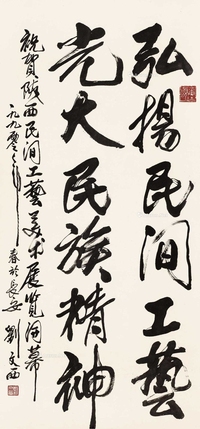 弘揚民间工藝
光大民族精神
祝賀陕西民间工藝美术展覽開幕
一九九零年
春於長安 劉文西